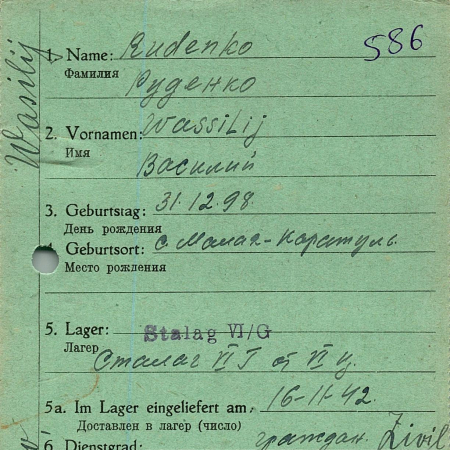 Wasilij
586
1. Name: Rudenko
Фамилия Руденко
2. Vornamen: Wassilij
Имя Василий
3. Geburtstag: 31.12.98.
День рождения
Geburtsort: с Малая-Каратуль
Место рождения
5. Lager: Stalag VI/G
Лагер
Сталаг VI Г от VI ц.
5a. Im Lager eingeliefert am: 16-11-42.
Доставлен в лагер (число)
6. Dienstgrad: граждан. Zivil